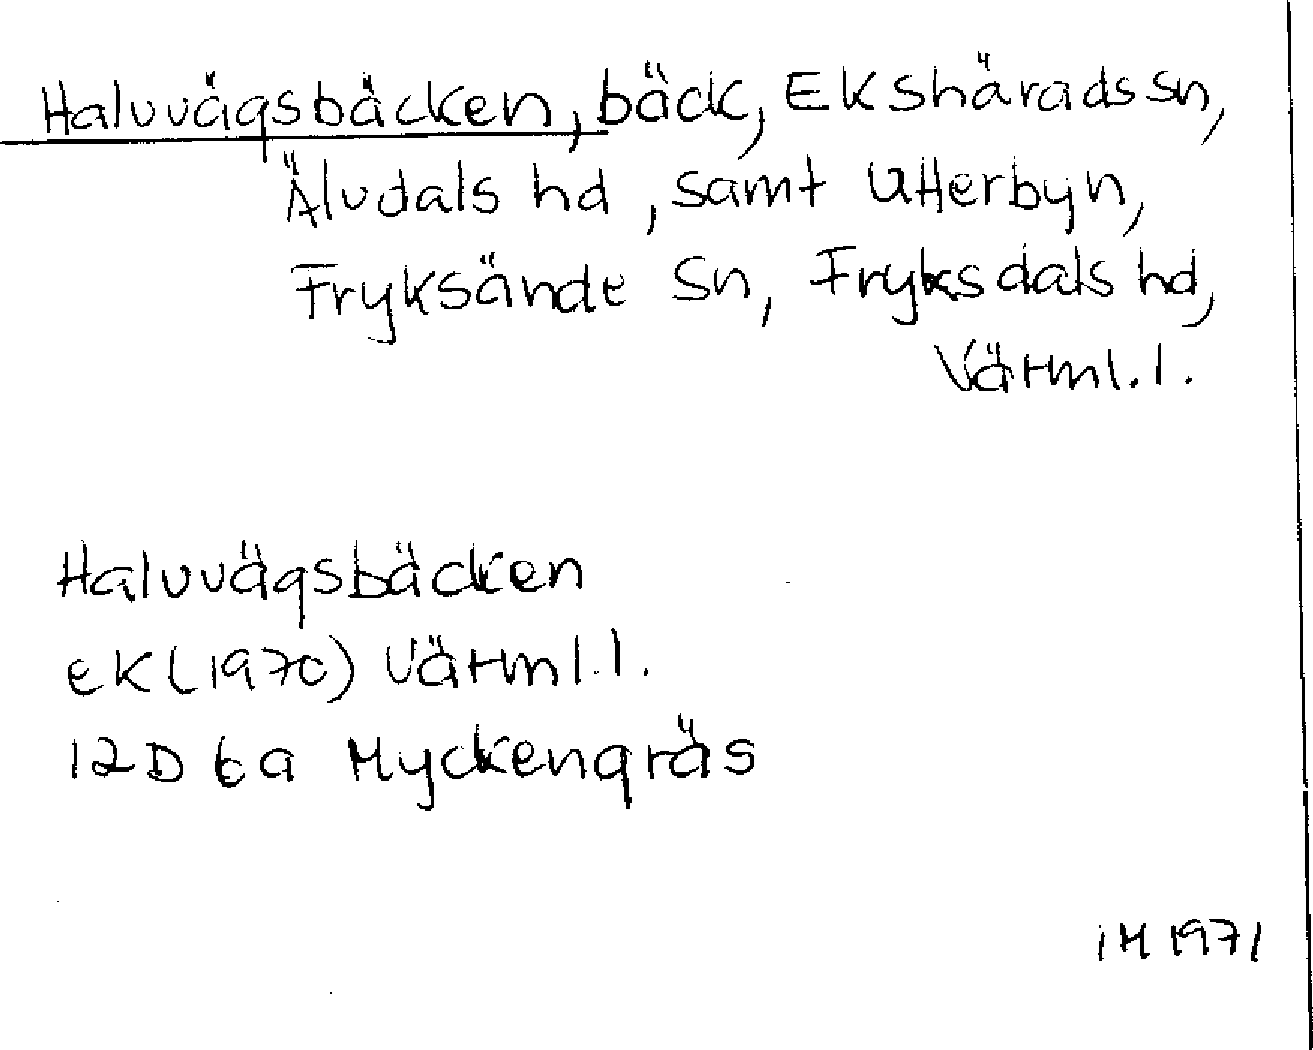 Halvvägsbäcken, bäck, Ekshärads sn,
Älvdals hd, samt Utterbyn,
Fryksände sn, Fryksdals hd,
Värml. l.
Halvvägsbäcken
eK (1970) Värml. l.
12D 6a Myckengräs
iM 1971